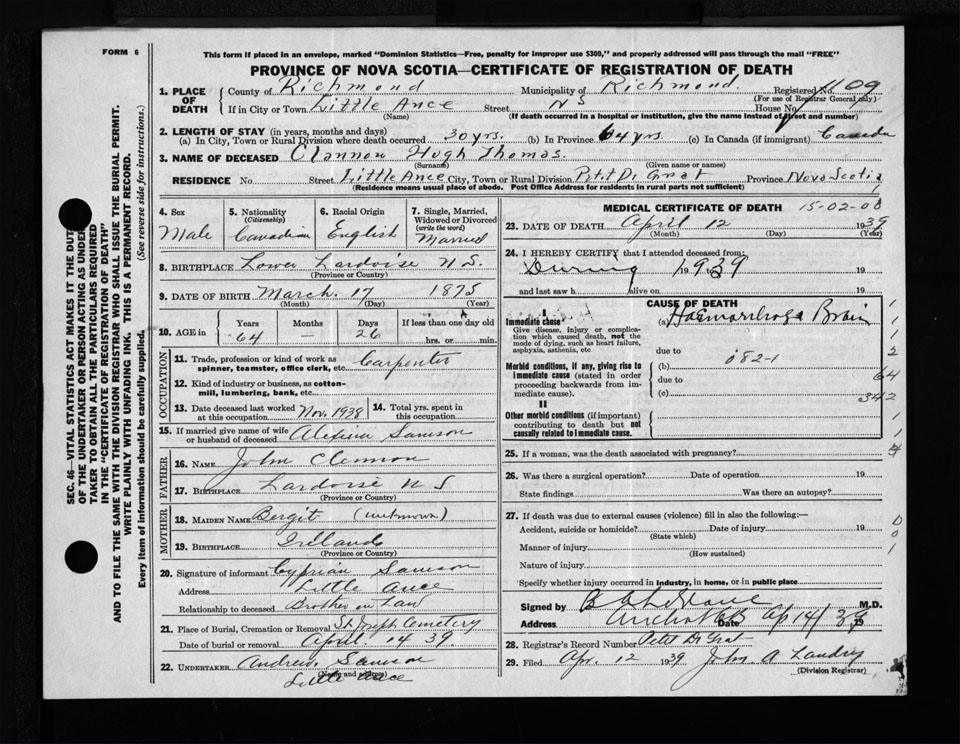 FORM 6
This form if placed in an envelope, marked "Dominion Statistics—Free, penalty for improper use $300," and properly addressed will pass through the mail "FREE"
PROVINCE OF NOVA SCOTIA—CERTIFICATE OF REGISTRATION OF DEATH
1. PLACE OF DEATH County of Richmond Municipality of Richmond. Registered No. 1109
(For use of Registrar General only)
If in City or Town Little Ance Street N S House No.
(Name) (If death occurred in a hospital or institution, give the name instead of street and number)
2. LENGTH OF STAY (in years, months and days)
(a) In City, Town or Rural Division where death occurred 30 yrs. (b) In Province 64 yrs. (c) In Canada (if immigrant) Canada
3. NAME OF DECEASED Clannon Hugh Thomas.
(Surname) (Given name or names)
RESIDENCE No. Street Little Ance City, Town or Rural Division Petit De Grat Province Nova Scotia
(Residence means usual place of abode. Post Office Address for residents in rural parts not sufficient)
SEC. 46—VITAL STATISTICS ACT MAKES IT THE DUTY
OF THE UNDERTAKER OR PERSON ACTING AS UNDER-
TAKER TO OBTAIN ALL THE PARTICULARS REQUIRED
IN THE "CERTIFICATE OF REGISTRATION OF DEATH"
AND TO FILE THE SAME WITH THE DIVISION REGISTRAR WHO SHALL ISSUE THE BURIAL PERMIT.
WRITE PLAINLY WITH UNFADING INK. THIS IS A PERMANENT RECORD.
Every item of information should be carefully supplied. (See reverse side for instructions.)
4. Sex Male
5. Nationality (Citizenship) Canadian
6. Racial Origin English
7. Single, Married, Widowed or Divorced (write the word) Married
8. BIRTHPLACE Lower Lardoise N S.
(Province or Country)
9. DATE OF BIRTH March. 17 1875
(Month) (Day) (Year)
10. AGE in Years 64 Months — Days 26 If less than one day old hrs. or min.
OCCUPATION
11. Trade, profession or kind of work as spinner, teamster, office clerk, etc. Carpenter
12. Kind of industry or business, as cotton-mill, lumbering, bank, etc.
13. Date deceased last worked at this occupation Nov. 1938
14. Total yrs. spent in this occupation
15. If married give name of wife or husband of deceased Samson
FATHER
16. NAME John Clennon
17. BIRTHPLACE Lardoise N S
(Province or Country)
MOTHER
18. MAIDEN NAME Bergit (unknown)
19. BIRTHPLACE Ireland
(Province or Country)
20. Signature of informant Cyprian Samson
Address Little Ance
Relationship to deceased Brother in Law
21. Place of Burial, Cremation or Removal St Joseph Cemetery
Date of burial or removal April 14 39.
22. UNDERTAKER Andrew Samson
(Name and address)
Little Ance
MEDICAL CERTIFICATE OF DEATH 15-02-00
23. DATE OF DEATH April 12 1939
(Month) (Day) (Year)
24. I HEREBY CERTIFY that I attended deceased from:
During 1939 19
and last saw h alive on 19
CAUSE OF DEATH
I
Immediate cause (a) Haemorrhage Brain
Give disease, injury or complication which caused death, not the mode of dying, such as heart failure, asphyxia, asthenia, etc
due to
Morbid conditions, if any, giving rise to immediate cause (stated in order proceeding backwards from immediate cause). (b) 082-1
due to
(c)
II
Other morbid conditions (if important) contributing to death but not causally related to immediate cause.
1
1
2
64
342
1
1
25. If a woman, was the death associated with pregnancy?
26. Was there a surgical operation? Date of operation 19
State findings Was there an autopsy?
27. If death was due to external causes (violence) fill in also the following:—
Accident, suicide or homicide? Date of injury 19
(State which)
Manner of injury
(How sustained)
Nature of injury
Specify whether injury occurred in Industry, in home, or in public place
0
0
1
Signed by M.D.
Address Arichat CB Date Ap 14/39 19
28. Registrar's Record Number Petit De Grat
29. Filed Apr. 12 1939 John A Landry
(Division Registrar)